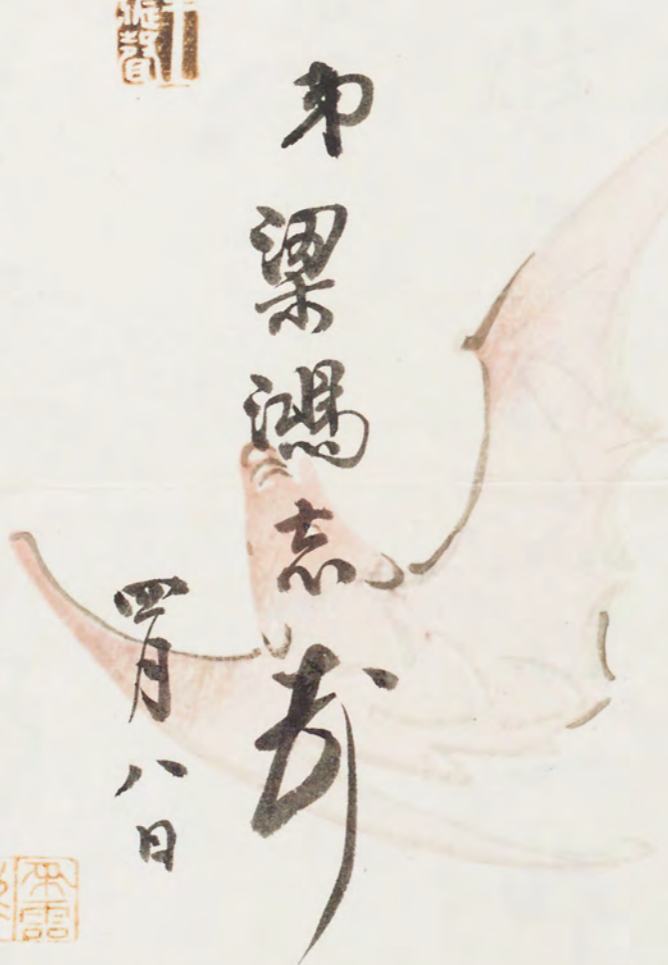 弟梁鴻志
四月八日